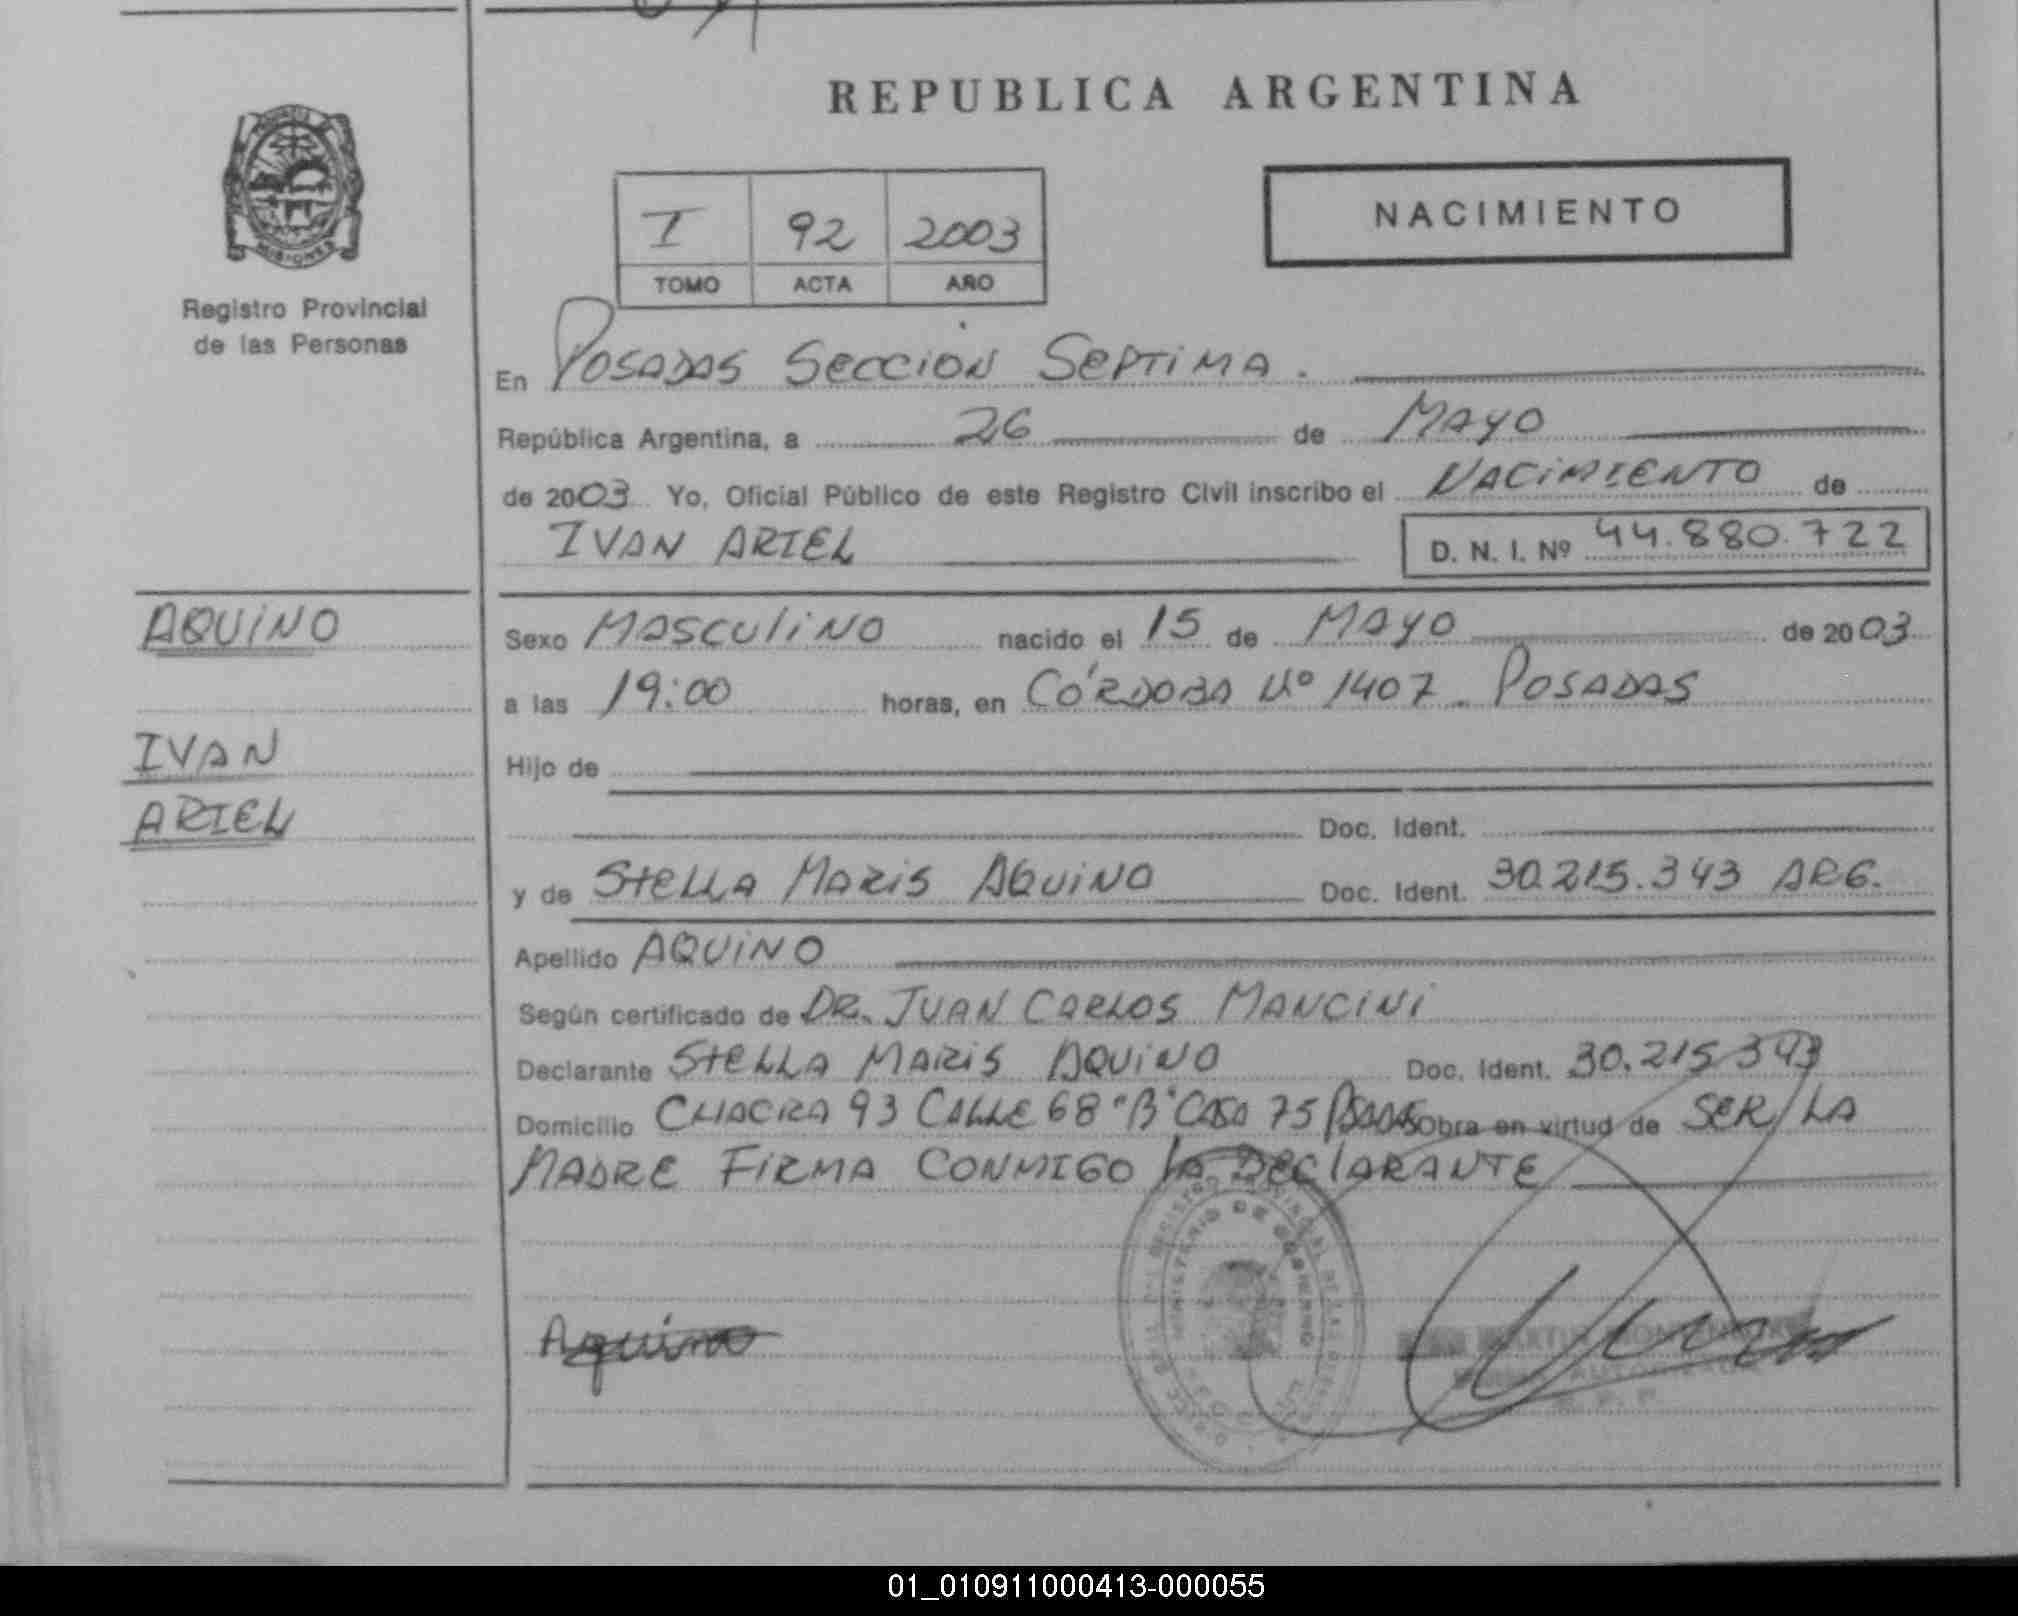 REPUBLICA ARGENTINA
NACIMIENTO
I 92 2003
TOMO ACTA AÑO
MISIONES
Registro Provincial
de las Personas
En POSADAS SECCION SEPTIMA.
República Argentina, a 26 de MAYO
de 2003 Yo, Oficial Público de este Registro Civil inscribo el NACIMIENTO de
IVAN ARIEL D. N. I. Nº 44.880.722
AQUINO
IVAN
ARIEL
Sexo MASCULINO nacido el 15 de MAYO de 2003
a las 19:00 horas, en CÓRDOBA Nº 1407. POSADAS
Hijo de
Doc. Ident.
y de STELLA MARIS AQUINO Doc. Ident. 30.215.343 ARG.
Apellido AQUINO
Según certificado de DR. JUAN CARLOS MANCINI
Declarante STELLA MARIS AQUINO Doc. Ident. 30.215.343
Domicilio CHACRA 93 CALLE 68 "B" CASA 75 POSADAS Obra en virtud de SER LA
MADRE FIRMA CONMIGO LA DECLARANTE
MINISTERIO DE GOBIERNO
Aquino
01_010911000413-000055